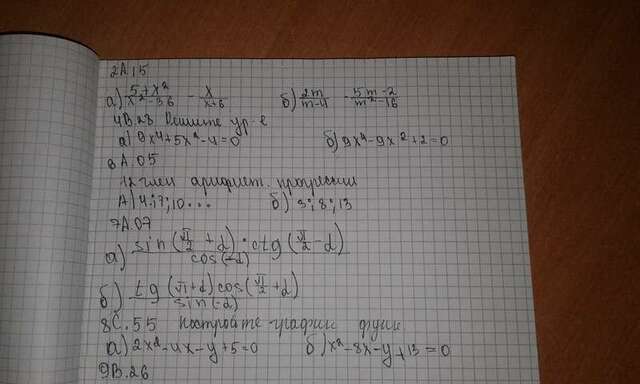 2A.15
а) (5+x²)/(x²-36) - x/(x+6)   б) 2m/(m-4) - (5m-2)/(m²-16)
4B.28 Решите ур-е
а) 9x⁴+5x²-4=0   б) 9x⁴-9x²+2=0
6A.05
12 член арифмет. прогрессии
А) 4;7;10...   б) 3;8;13
7A.07
а) sin(π/2+α)·ctg(π/2-α) / cos(-α)
б) tg(π+α)cos(π/2+α) / sin(-α)
8C.55 постройте график функ
а) 2x²-4x-y+5=0   б) x²-8x-y+13=0
9B.26